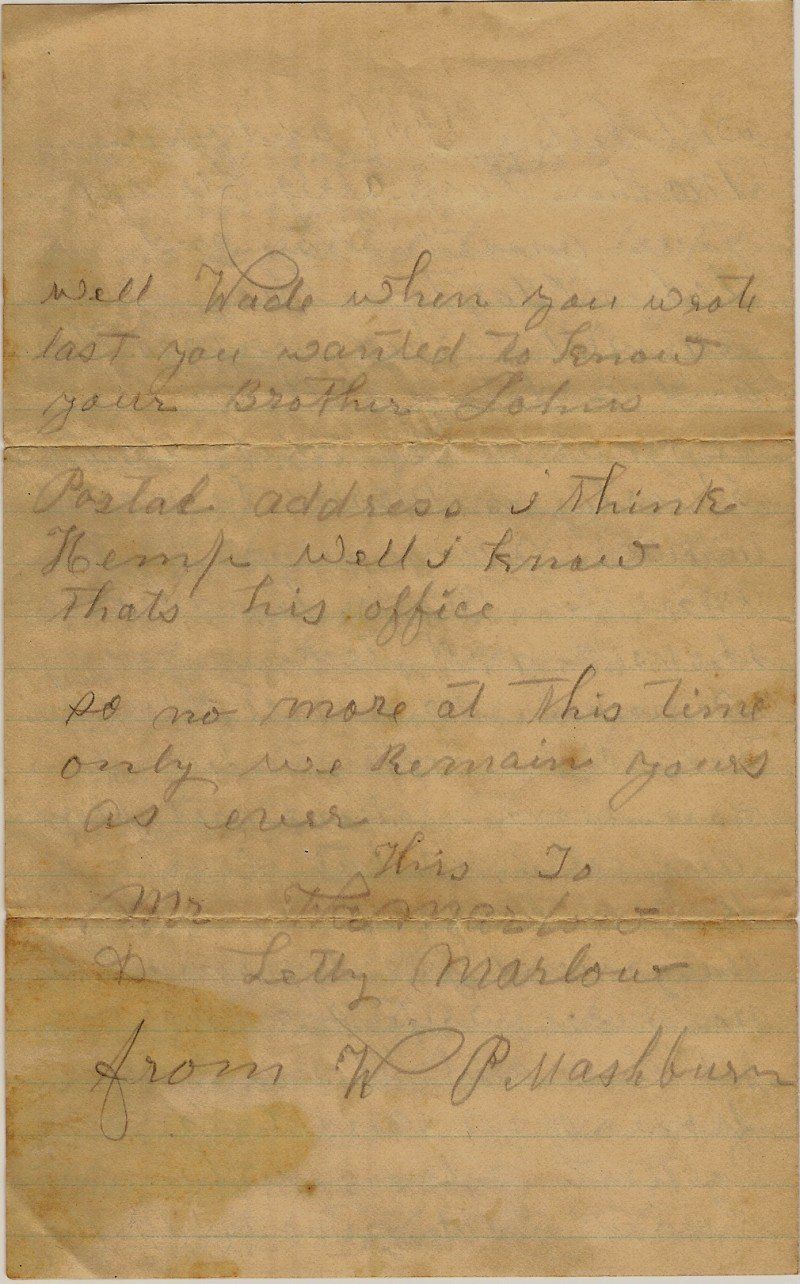 well Wade when you wrote
last you wanted to know
your Brother Johns
Postal address i think
Hemp well i know
thats his office
so no more at this time
only we Remain yours
as ever
This To
Mr Marlow
& Letty Marlow
from W P Mashburn